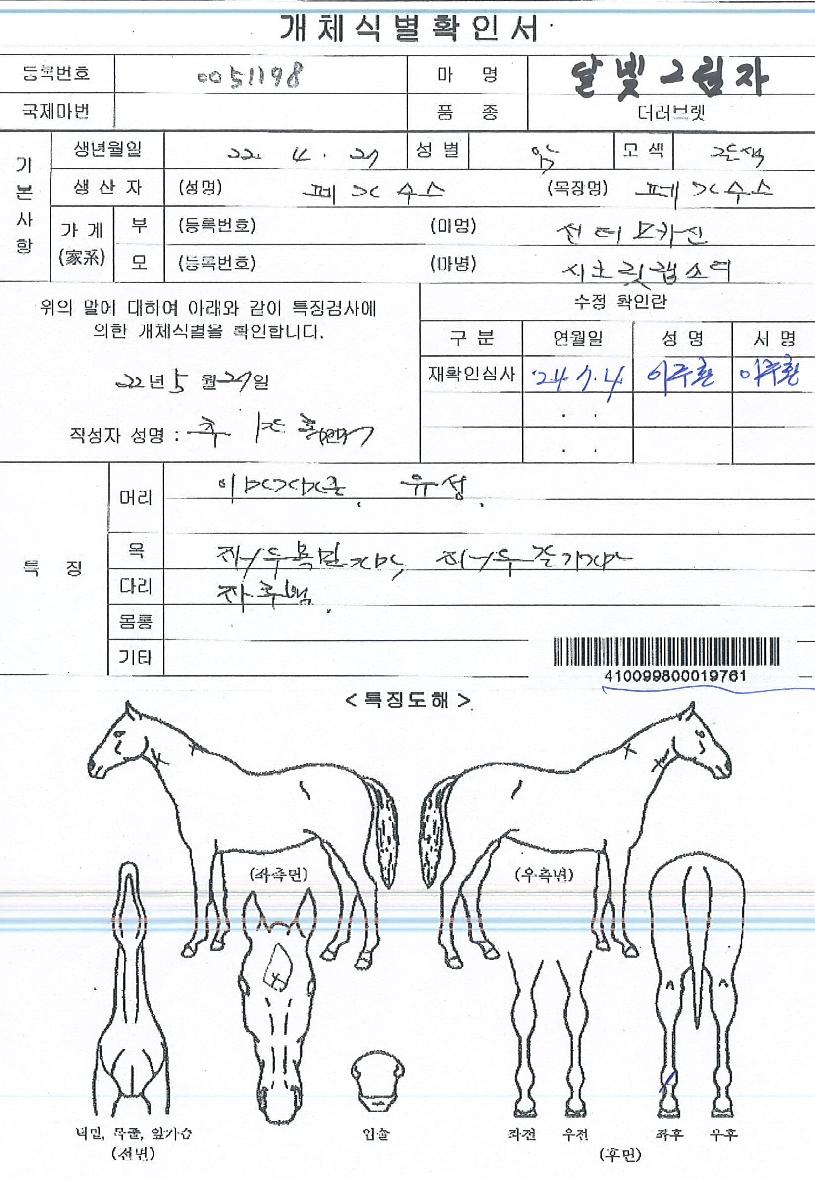 개체식별확인서
등록번호 0051198 마 명 달빛그림자
국제마번 품 종 더러브렛
기본사항
생년월일 22. 4. 27 성 별 암 모 색
생 산 자 (성명) 페가수스 (목장명) 페가수스
가 계 (家系)
부 (등록번호) (마명)
모 (등록번호) (마명) 시크릿랩소디
위의 말에 대하여 아래와 같이 특징검사에
의한 개체식별을 확인합니다.
22년 5월 27일
작성자 성명 :
수정 확인란
구 분 연월일 성 명 서 명
재확인심사 '24.7.4 이주환 이주환
. .
. .
특 징
머리 유성.
목
다리 좌후백.
몸통
기타
410099800019761
<특징도해>
(좌측면) (우측면)
턱밑, 목줄, 앞가슴 입술 좌전 우전 좌후 우후
(전면) (후면)